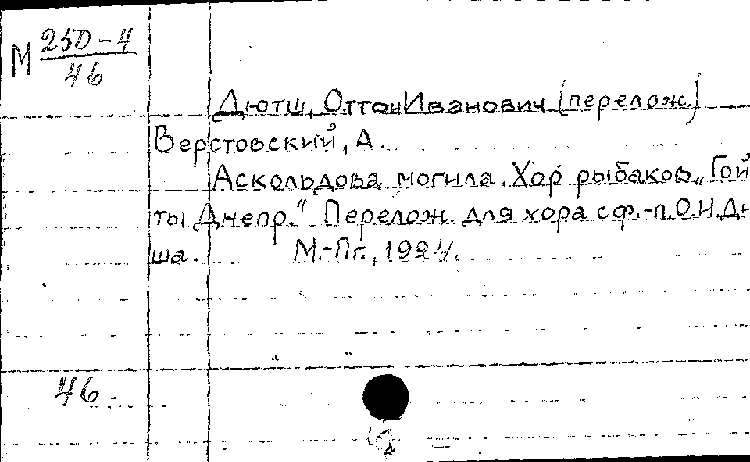 М 250-4
46
Дютш, Оттон Иванович (перелож)
Верстовский, А.
Аскольдова могила. Хор рыбаков „Гой
ты Днепр." Перелож. для хора с ф.-п. О.И. Дю
ша. М.-Пг., 1924.
46